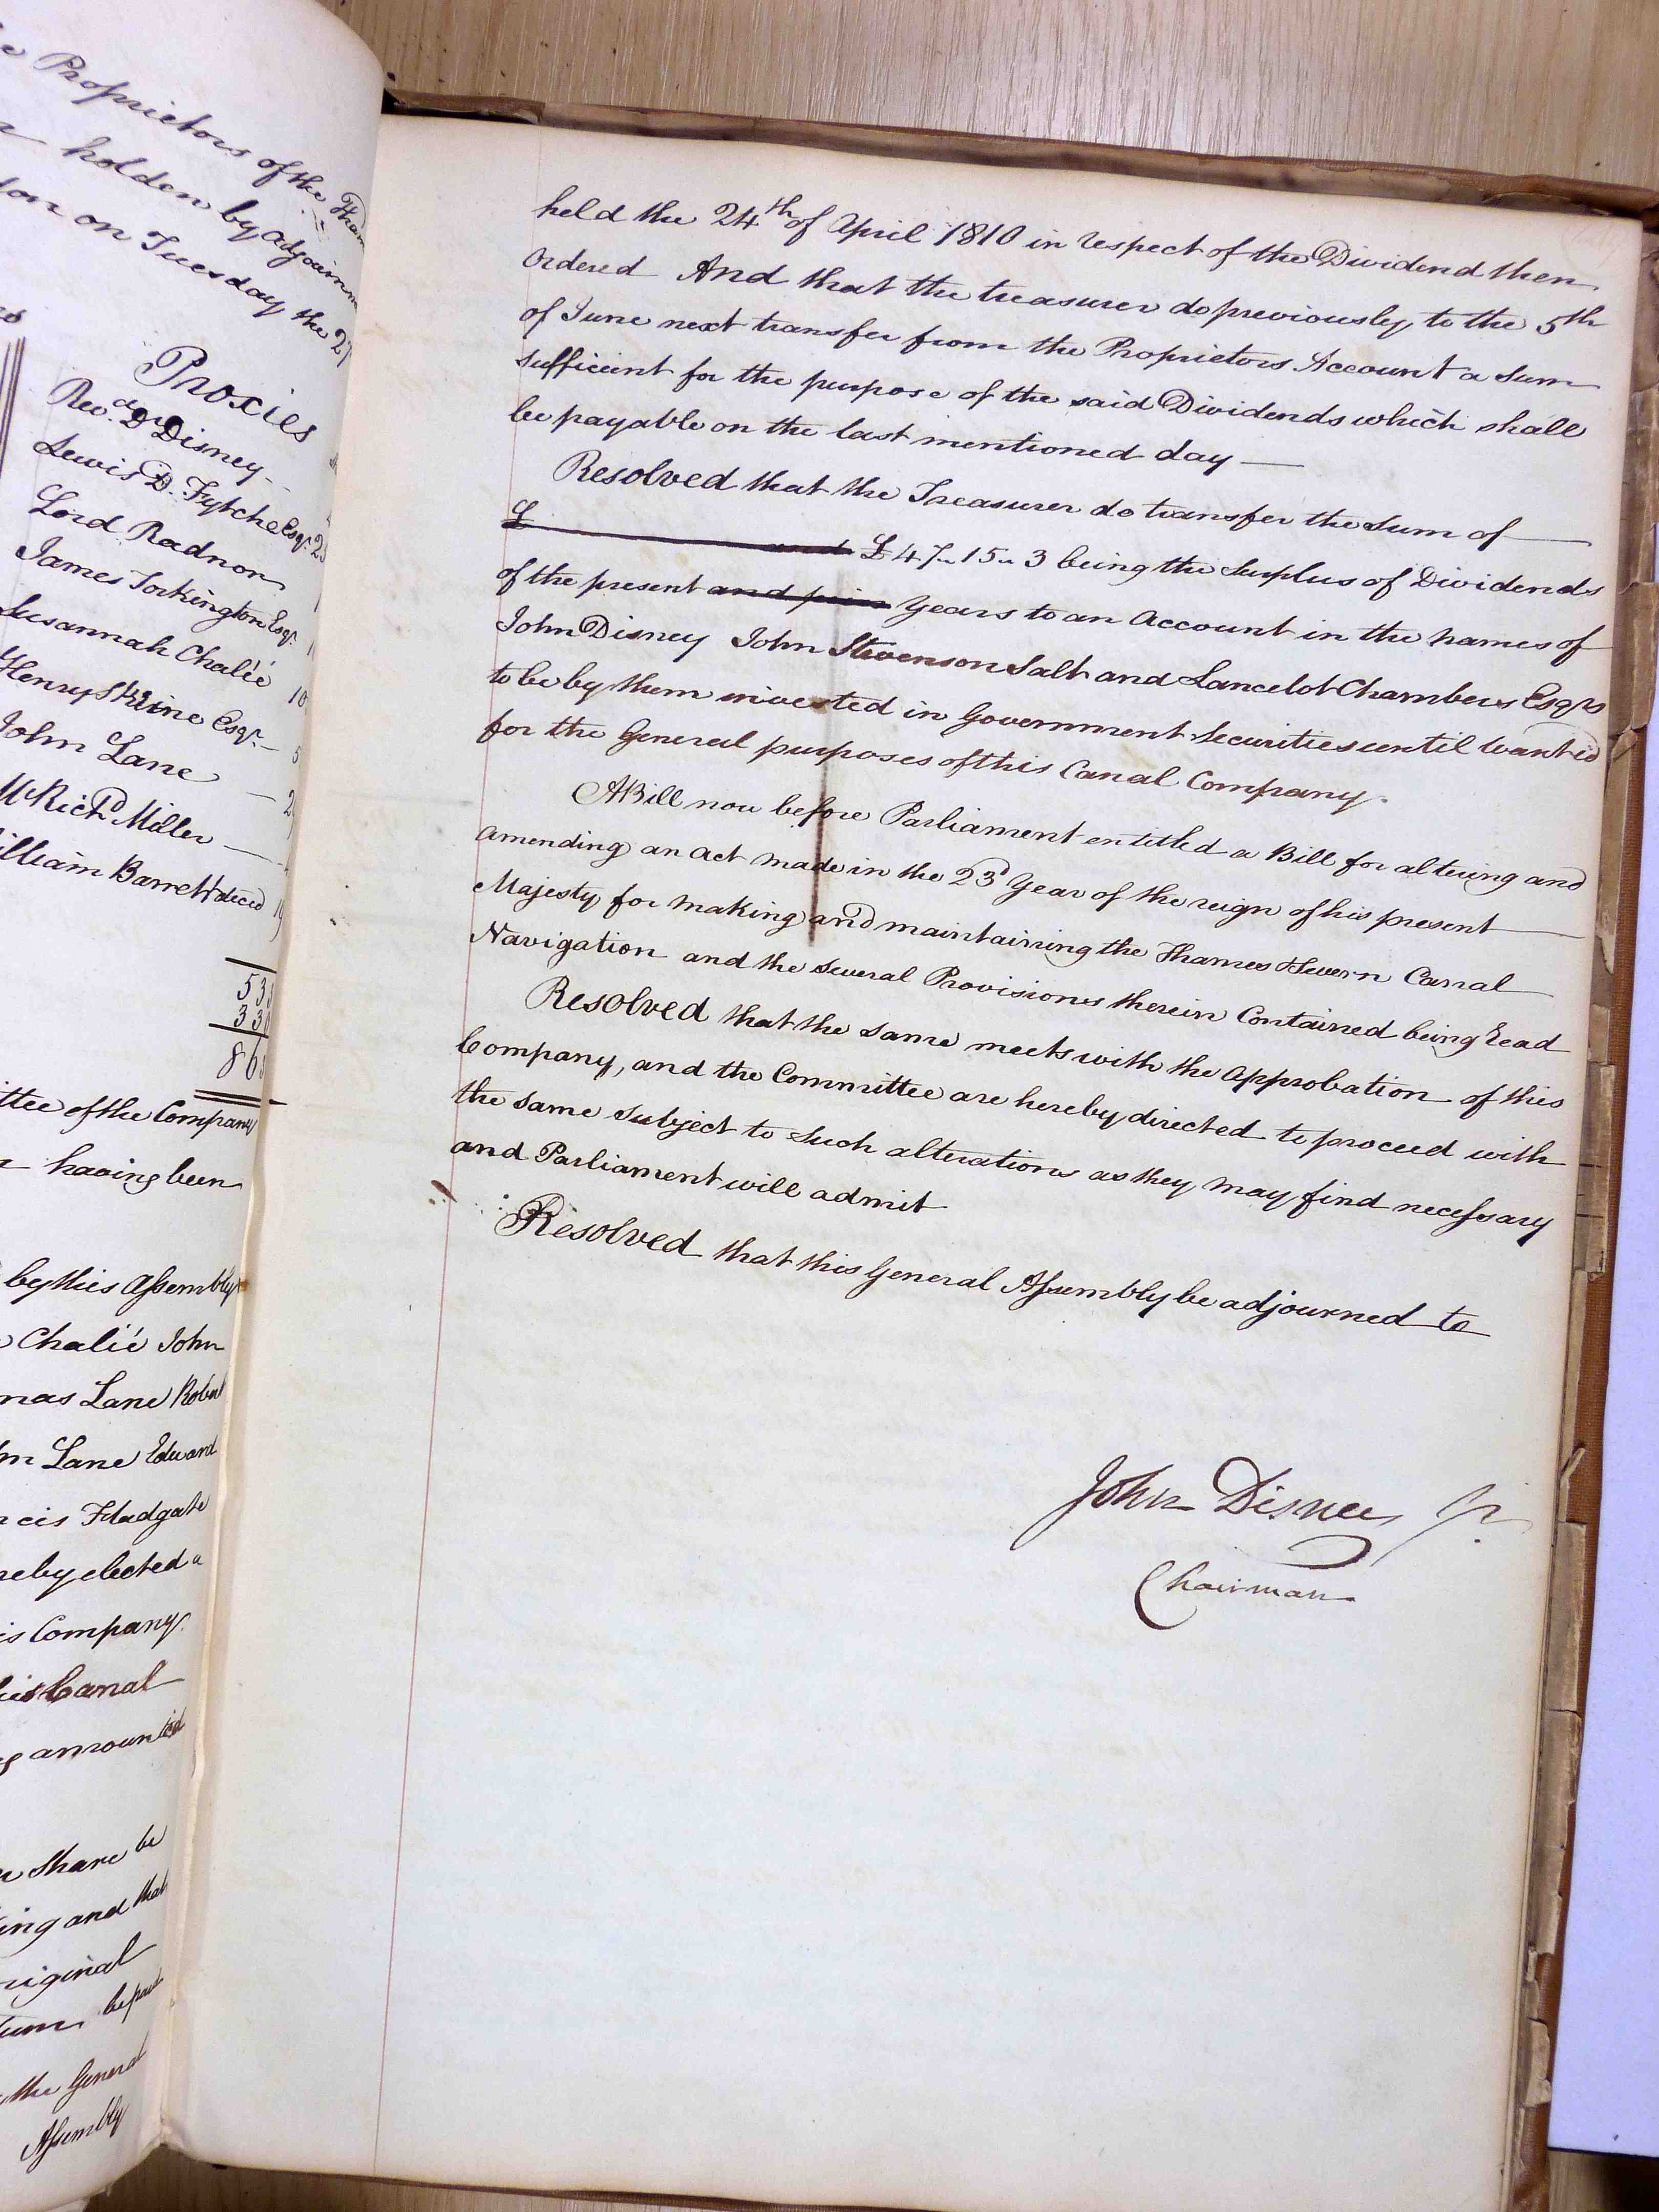 e Proprietors of the Tham
holden by adjournm
on on Tuesday the 27
Proxies
Rev. Dr Disney
Lewis D. Fytche Esqr. 2
Lord Radnor
James Torkington Esqr. 1
Susannah Chalié 10
Henry Skrine Esqr. 5
John Lane 2
Mr Richd Miller
illiam Barrett decd 19
53
33
86
ttee of the Company
having been
by this Assembly
Chalié John
mas Lane Robert
hn Lane Edward
ncis Fladgate
reby elected a
is Company
his Canal
g amounted
Share be
ing and that
riginal
be paid
the General
Assembly
held the 24th of April 1810 in respect of the Dividend then
Ordered And that the treasurer do previously to the 5th
of June next transfer from the Proprietors Account a Sum
sufficient for the purpose of the said Dividends which shall
be payable on the last mentioned day —
Resolved that the Treasurer do transfer the Sum of —
£ and £47 „ 15 „ 3 being the Surplus of Dividends
of the present and prior Years to an Account in the names of
John Disney John Stevenson Salt and Lancelot Chambers Esqrs
to be by them invested in Government Securities until wanted
for the General purposes of this Canal Company.
A Bill now before Parliament entitled a Bill for altering and
amending an act made in the 23d Year of the reign of his present —
Majesty for making and maintaining the Thames & Severn Canal
Navigation and the several Provisions therein Contained being read
Resolved that the same meets with the Approbation of this
Company, and the Committee are hereby directed to proceed with
the same subject to such alterations as they may find necessary
and Parliament will admit
Resolved that this General Assembly be adjourned to
John Disney Jr.
Chairman